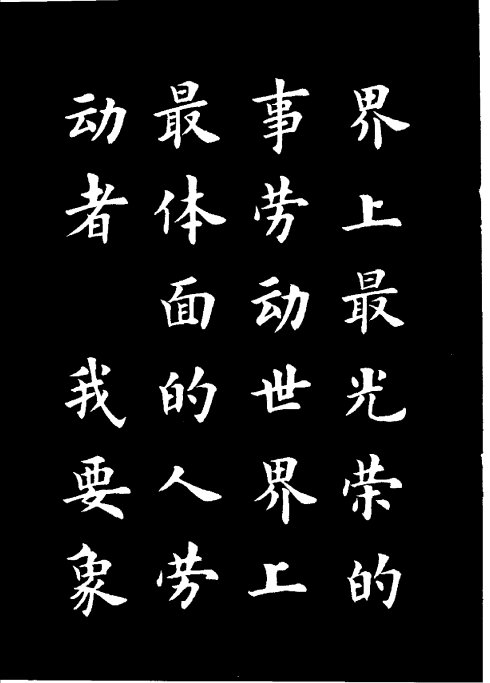 界上最光荣的
事劳动世界上
最体面的人劳
动者 我要象